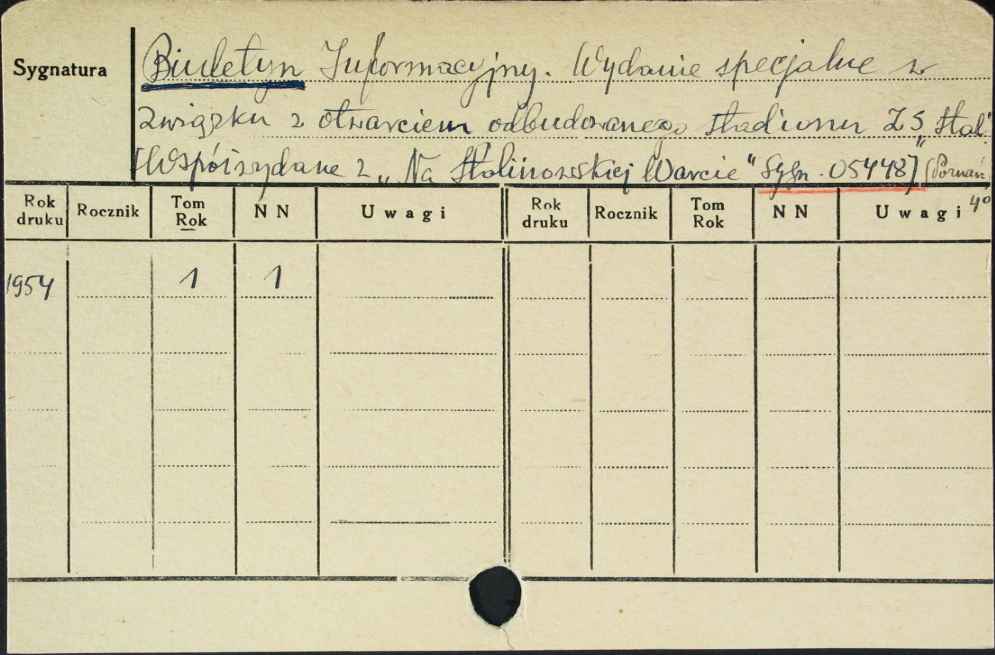 Sygnatura
Biuletyn Informacyjny. Wydanie specjalne w
związku z otwarciem odbudowanego stadionu ZS „Stal”
[Współwydane z „Na Stalinowskiej Warcie" Sygn. 05448] (Poznań
4°
Rok druku Rocznik Tom Rok NN Uwagi Rok druku Rocznik Tom Rok NN Uwagi
1954 1 1